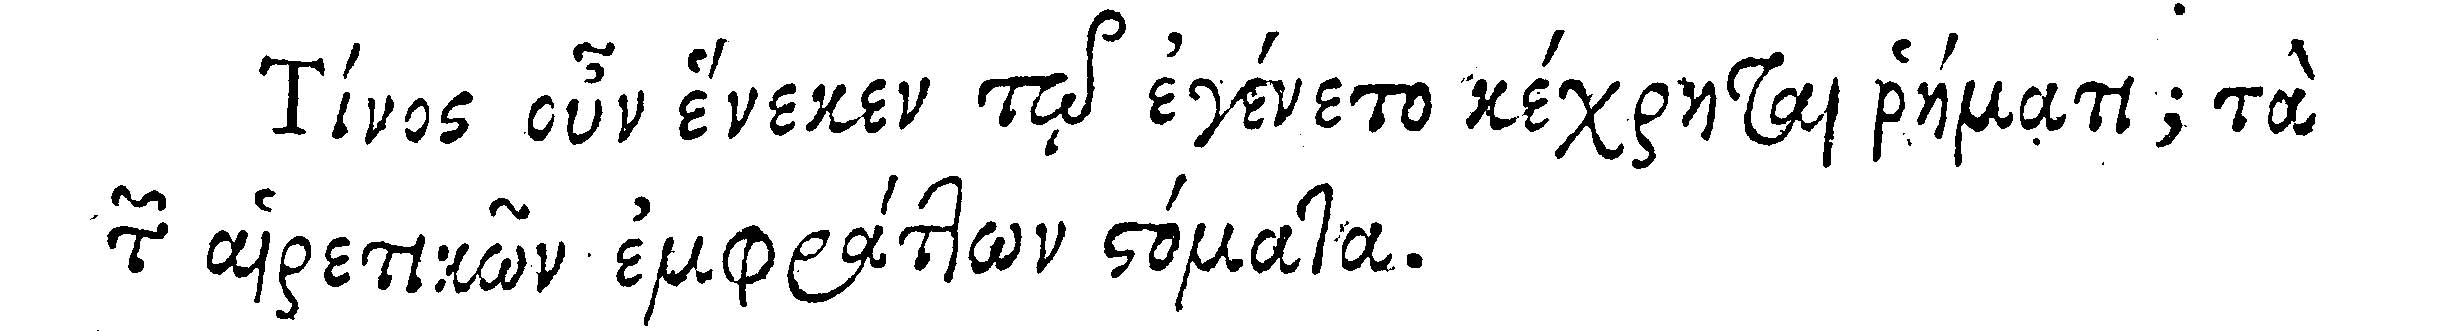 Τίνος οὖν ἕνεκεν τῷ ἐγένετο κέχρηται ῥήματι; τὰ
τῶν αἱρετικῶν ἐμφράττων στόματα.